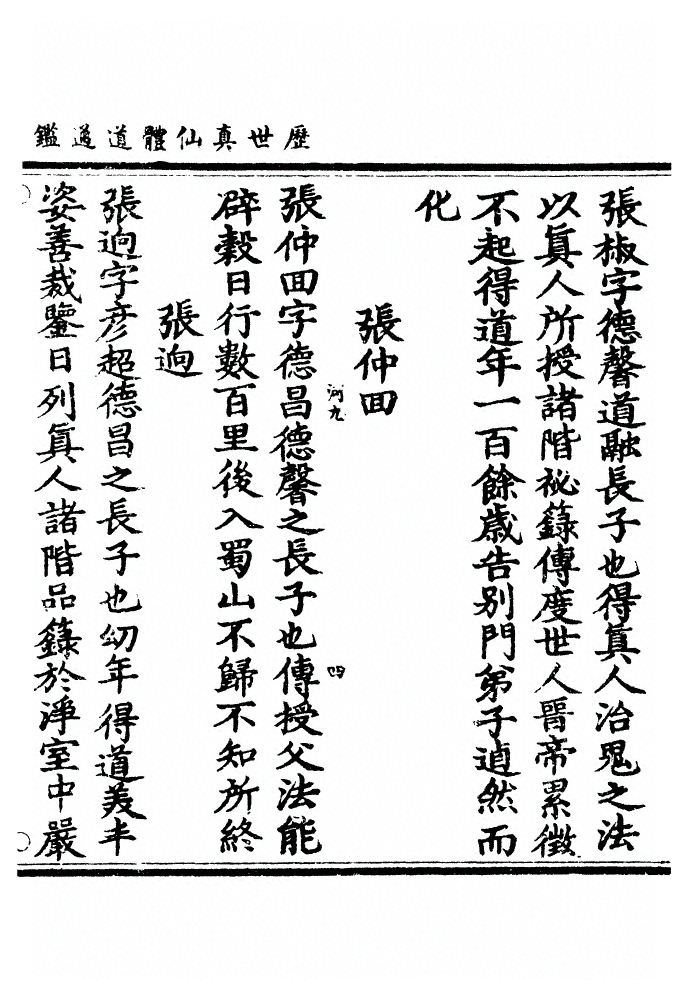 歷世真仙體道通鑑
張椒字德馨道融長子也得眞人治鬼之法
以眞人所授諸階祕籙傳度世人晉帝累徵
不起得道年一百餘歲告別門弟子逌然而
化
張仲回
張仲回字德昌德馨之長子也傳授父法能
河九
四
辟穀日行數百里後入蜀山不歸不知所終
張迥
張迥字彥超德昌之長子也幼年得道美丰
姿善裁鑒日列眞人諸階品籙於淨室中嚴